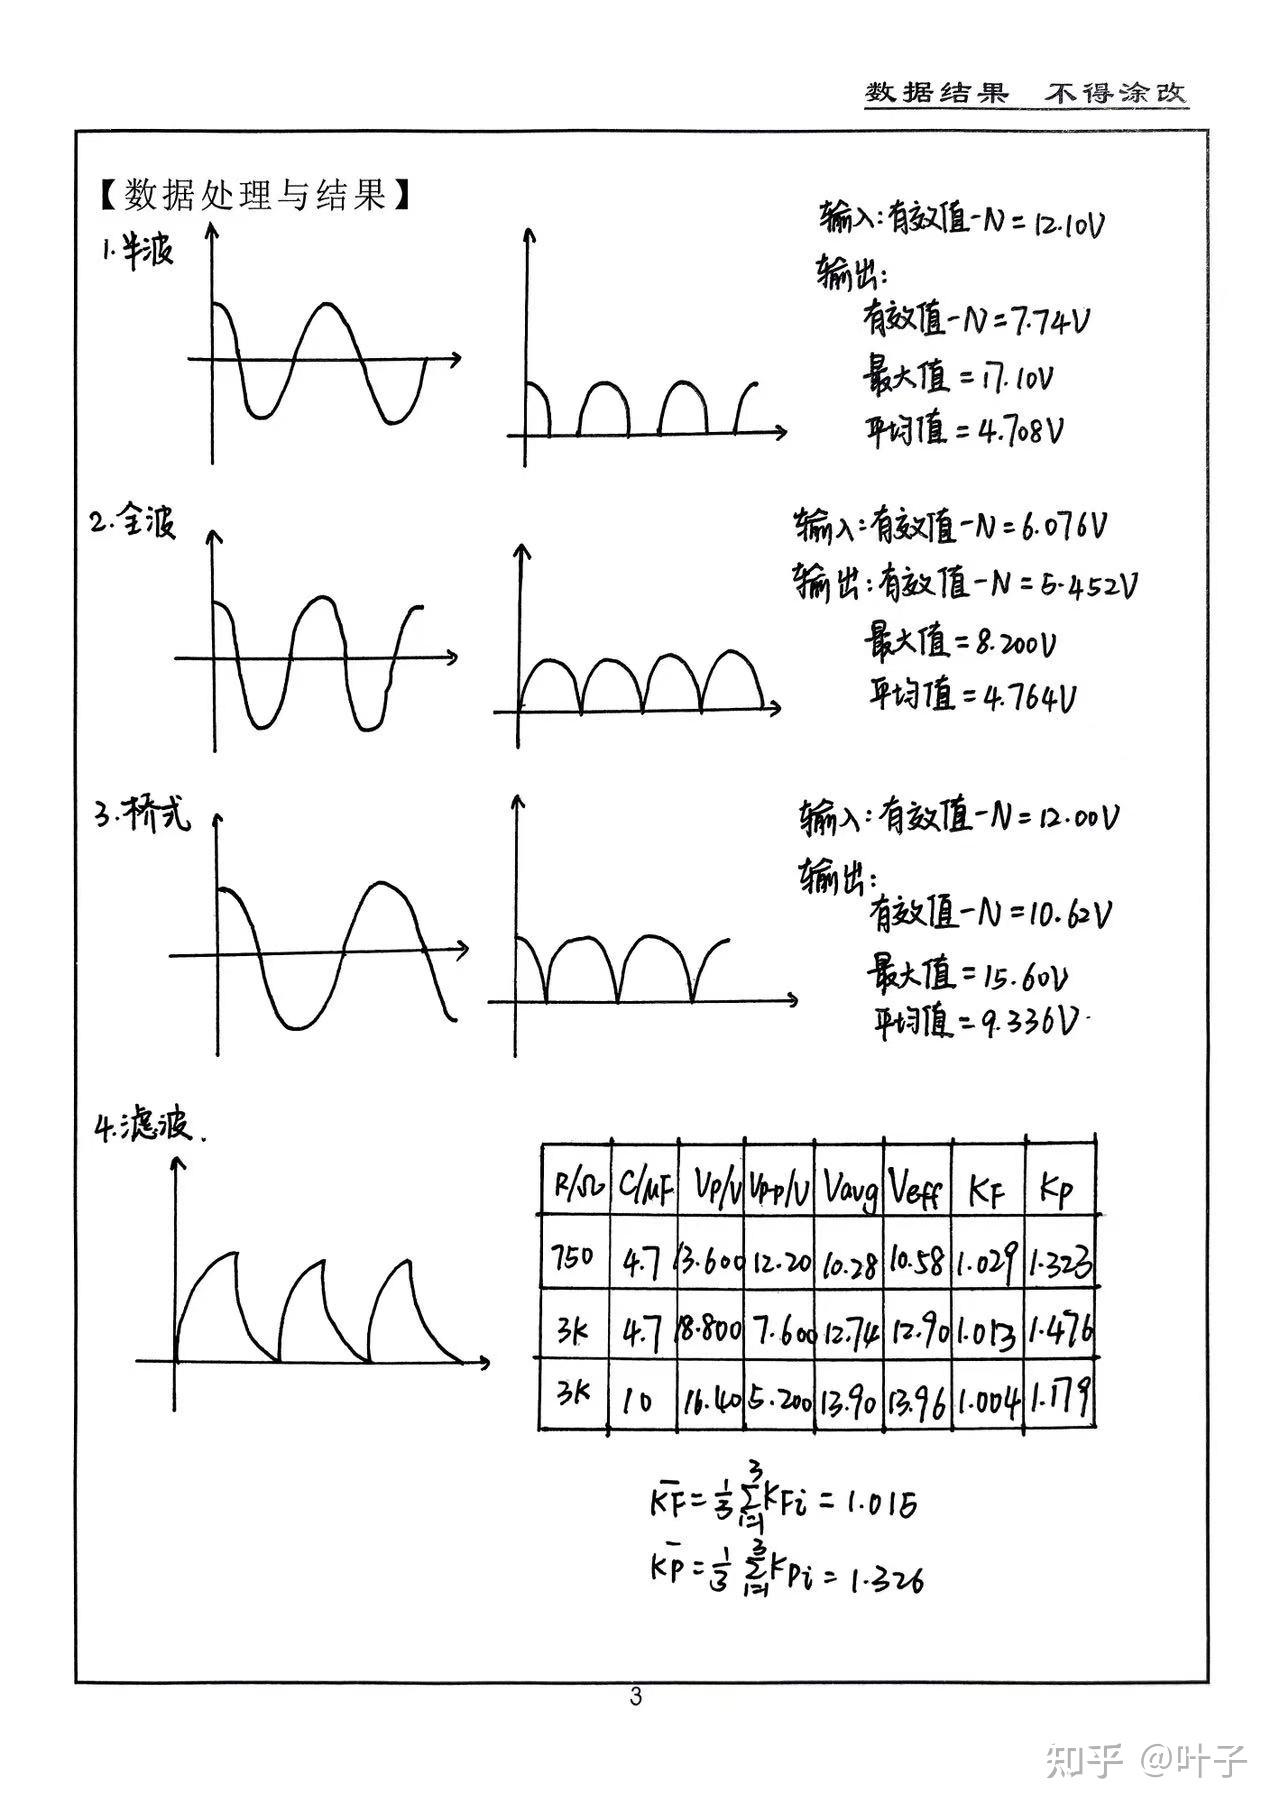 数据结果 不得涂改
【数据处理与结果】
1.半波
输入:有效值-N=12.10V
输出:
有效值-N=7.74V
最大值=17.10V
平均值=4.708V
2.全波
输入:有效值-N=6.076V
输出:有效值-N=5.452V
最大值=8.200V
平均值=4.764V
3.桥式
输入:有效值-N=12.00V
输出:
有效值-N=10.62V
最大值=15.60V
平均值=9.336V.
4.滤波.
R/Ω C/μF Vp/V Vp-p/V Vavg Veff KF KP
750 4.7 13.600 12.20 10.28 10.58 1.029 1.323
3K 4.7 18.800 7.600 12.74 12.90 1.013 1.476
3K 10 16.40 5.200 13.90 13.96 1.004 1.179
K̄F=1/3 ∑(i=1→3) KFi=1.015
K̄P=1/3 ∑(i=1→3) KPi=1.326
3
知乎 @叶子